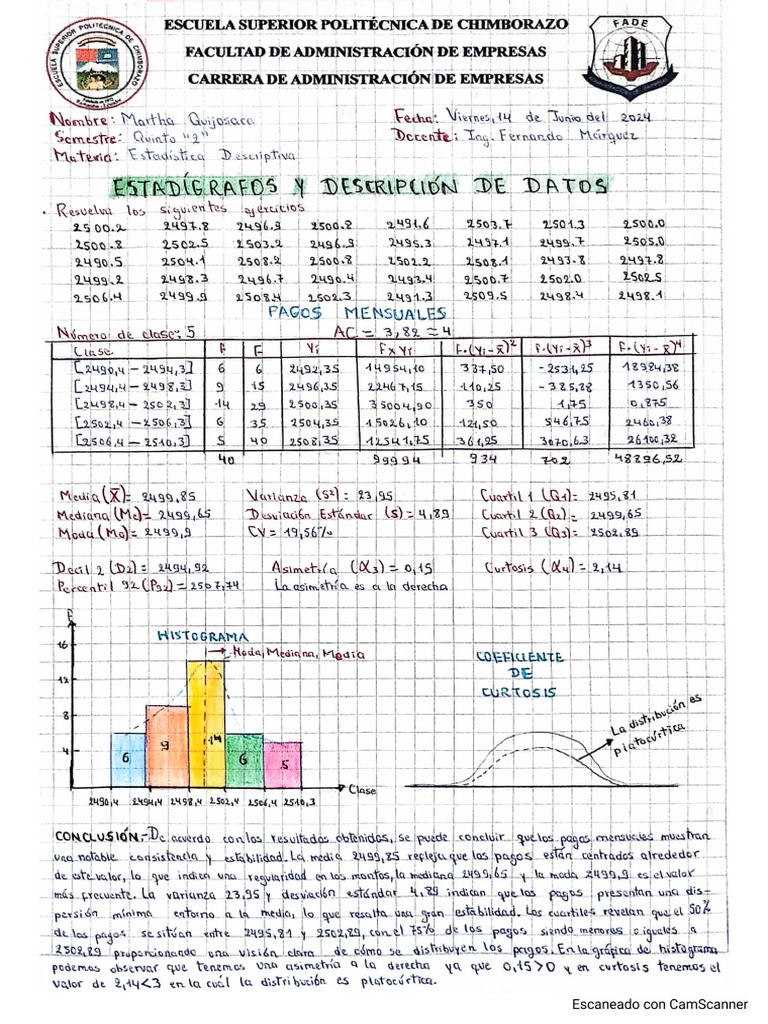 ESCUELA SUPERIOR POLITÉCNICA DE CHIMBORAZO
FACULTAD DE ADMINISTRACIÓN DE EMPRESAS
CARRERA DE ADMINISTRACIÓN DE EMPRESAS
FADE
Nombre: Martha Quijosaca
Fecha: Viernes, 14 de Junio del 2024
Semestre: Quinto "2"
Docente: Ing. Fernando Márquez
Materia: Estadística Descriptiva
ESTADÍGRAFOS Y DESCRIPCIÓN DE DATOS
. Resuelva los siguientes ejercicios
2500.2 2497.8 2496.9 2500.8 2491.6 2503.7 2501.3 2500.0
2500.8 2502.5 2503.2 2496.9 2495.3 2497.1 2499.7 2505.0
2490.5 2504.1 2508.2 2500.8 2502.2 2508.1 2493.8 2497.8
2499.2 2498.3 2496.7 2490.4 2493.4 2500.7 2502.0 2502.5
2506.4 2499.9 2508.4 2502.3 2491.3 2509.5 2498.4 2498.1
PAGOS MENSUALES
Número de clase: 5
AC = 3,82 ≈ 4
Clase F F Yi F x Yi F.(Yi - x̄)² F.(Yi - x̄)³ F.(Yi - x̄)⁴
[2490,4 - 2494,3] 6 6 2492,35 14954,10 337,50 -2531,25 18984,38
[2494,4 - 2498,3] 9 15 2496,35 22467,15 110,25 -385,88 1350,56
[2498,4 - 2502,3] 14 29 2500,35 35004,90 350 1,75 0,875
[2502,4 - 2506,3] 6 35 2504,35 15026,10 121,50 546,75 2460,38
[2506,4 - 2510,3] 5 40 2508,35 12541,75 361,25 3070,63 26100,32
40 99994 934 702 48896,52
Media (X̄)= 2499,85
Varianza (S²): 23,95
Cuartil 1 (Q1): 2495,81
Mediana (Me)= 2499,65
Desviación Estándar (S)= 4,89
Cuartil 2 (Q2)= 2499,65
Moda (Mo)= 2499,9
CV= 19,56%
Cuartil 3 (Q3): 2502,89
Decil 2 (D2)= 2494,92
Asimetría (α3)= 0,15
Curtosis (α4)= 2,14
Percentil 92 (P92)= 2507,74
La asimetría es a la derecha
F
HISTOGRAMA
Moda, Mediana, Media
16
12
8
4
6
9
14
6
5
Clase
2490,4 2494,4 2498,4 2502,4 2506,4 2510,3
COEFICIENTE
DE
CURTOSIS
La distribución es
platocúrtica
CONCLUSIÓN.- De acuerdo con los resultados obtenidos, se puede concluir que los pagos mensuales muestran
una notable consistencia y estabilidad. La media 2499,85 refleja que los pagos están centrados alrededor
de este valor, lo que indica una regularidad en los montos, la mediana 2499,65 y la moda 2499,9 es el valor
más frecuente. La varianza 23,95 y desviación estándar 4,89 indican que los pagos presentan una dis-
persión mínima entorno a la media, lo que resalta una gran estabilidad. Los cuartiles revelan que el 50%
de los pagos se sitúan entre 2495,81 y 2502,89, con el 75% de los pagos siendo menores o iguales a
2502,89 proporcionando una visión clara de cómo se distribuyen los pagos. En la gráfica de histograma
podemos observar que tenemos una asimetría a la derecha ya que 0,15>0 y en curtosis tenemos el
valor de 2,14<3 en la cuál la distribución es platocúrtica.
Escaneado con CamScanner